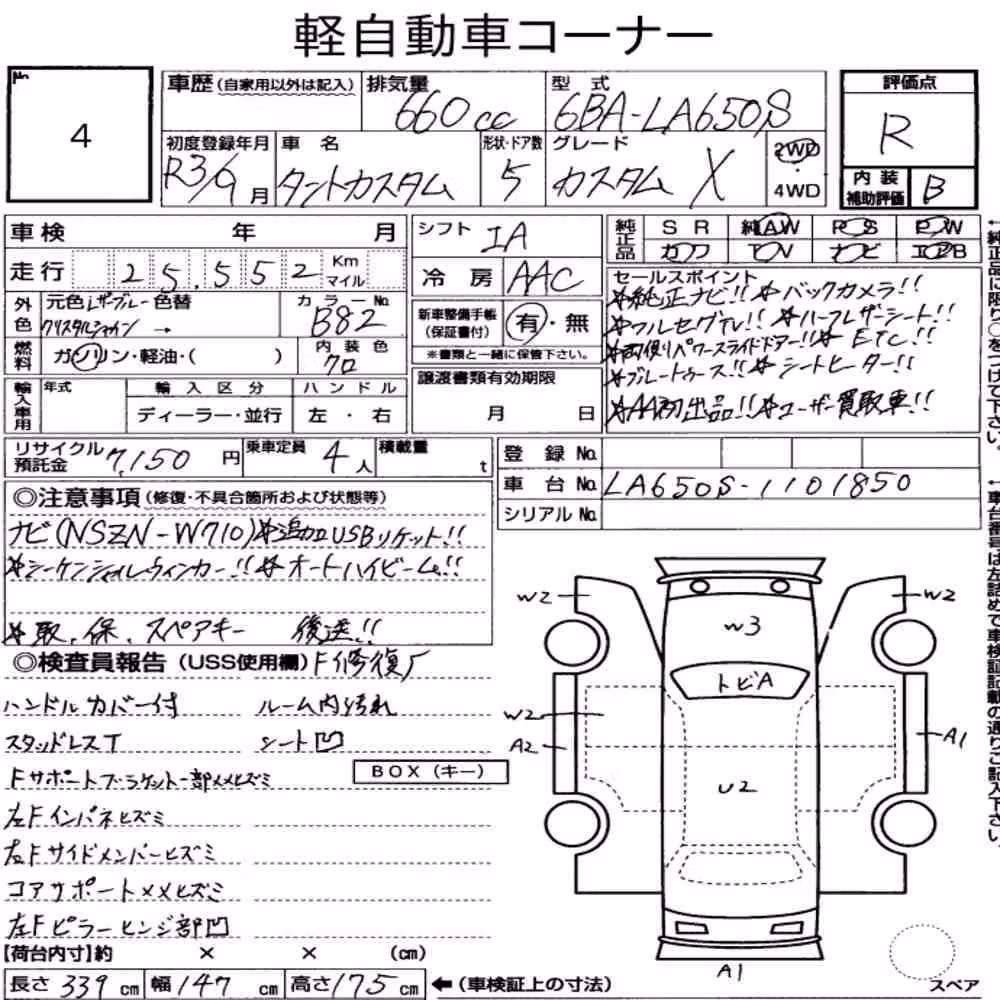 軽自動車コーナー
No.
4
車歴(自家用以外は記入) 排気量 660cc 型式 6BA-LA650S
初度登録年月 R3/9月 車名 タントカスタム 形状・ドア数 5 グレード カスタム X 2WD 4WD
評価点 R
内装補助評価 B
車検 年 月
走行 25,552 Km マイル
外色 元色 レーザーブルー 色替 カラーNo. B82
クリスタルシャイン →
燃料 ガソリン・軽油・( ) 内装色 クロ
輸入車用 年式 輸入区分 ハンドル
ディーラー・並行 左・右
シフト IA
冷房 AAC
新車整備手帳(保証書付) 有・無
※書類と一緒に保管下さい。
譲渡書類有効期限
月 日
純正品 SR 純AW PS PW
カワ TV ナビ エアB
セールスポイント
*純正ナビ!! *バックカメラ!!
*フルセグTV!! *ハーフレザーシート!!
*両側パワースライドドアー!! *ETC!!
*ブルートゥース!! *シートヒーター!!
*AA初出品!! *ユーザー買取車!!
←純正品に限り〇をつけて下さい。
リサイクル預託金 7,150円 乗車定員 4人 積載量 t
登録No.
車台No. LA650S-1101850
シリアルNo.
←車台番号は左詰めで車検証記載の通りご記入下さい。
◎注意事項(修復・不具合箇所および状態等)
ナビ(NSZN-W710)*追加USBソケット!!
*シーケンシャルウィンカー!! *オートハイビーム!!
*取、保、スペアキー 後送!!
◎検査員報告(USS使用欄) F修復厂
ハンドルカバー付 ルーム内汚れ
スタッドレスT シート凹
Fサポートブラケット一部メメヒズミ
BOX(キー)
左Fインパネヒズミ
左Fサイドメンバーヒズミ
コアサポートメメヒズミ
左Fピラーヒンジ部凹
【荷台内寸】約 × × (cm)
長さ 339 cm 幅 147 cm 高さ 175 cm ←(車検証上の寸法)
W2 W2
W3
トビA
W2
A2 A1
U2
A1
スペア